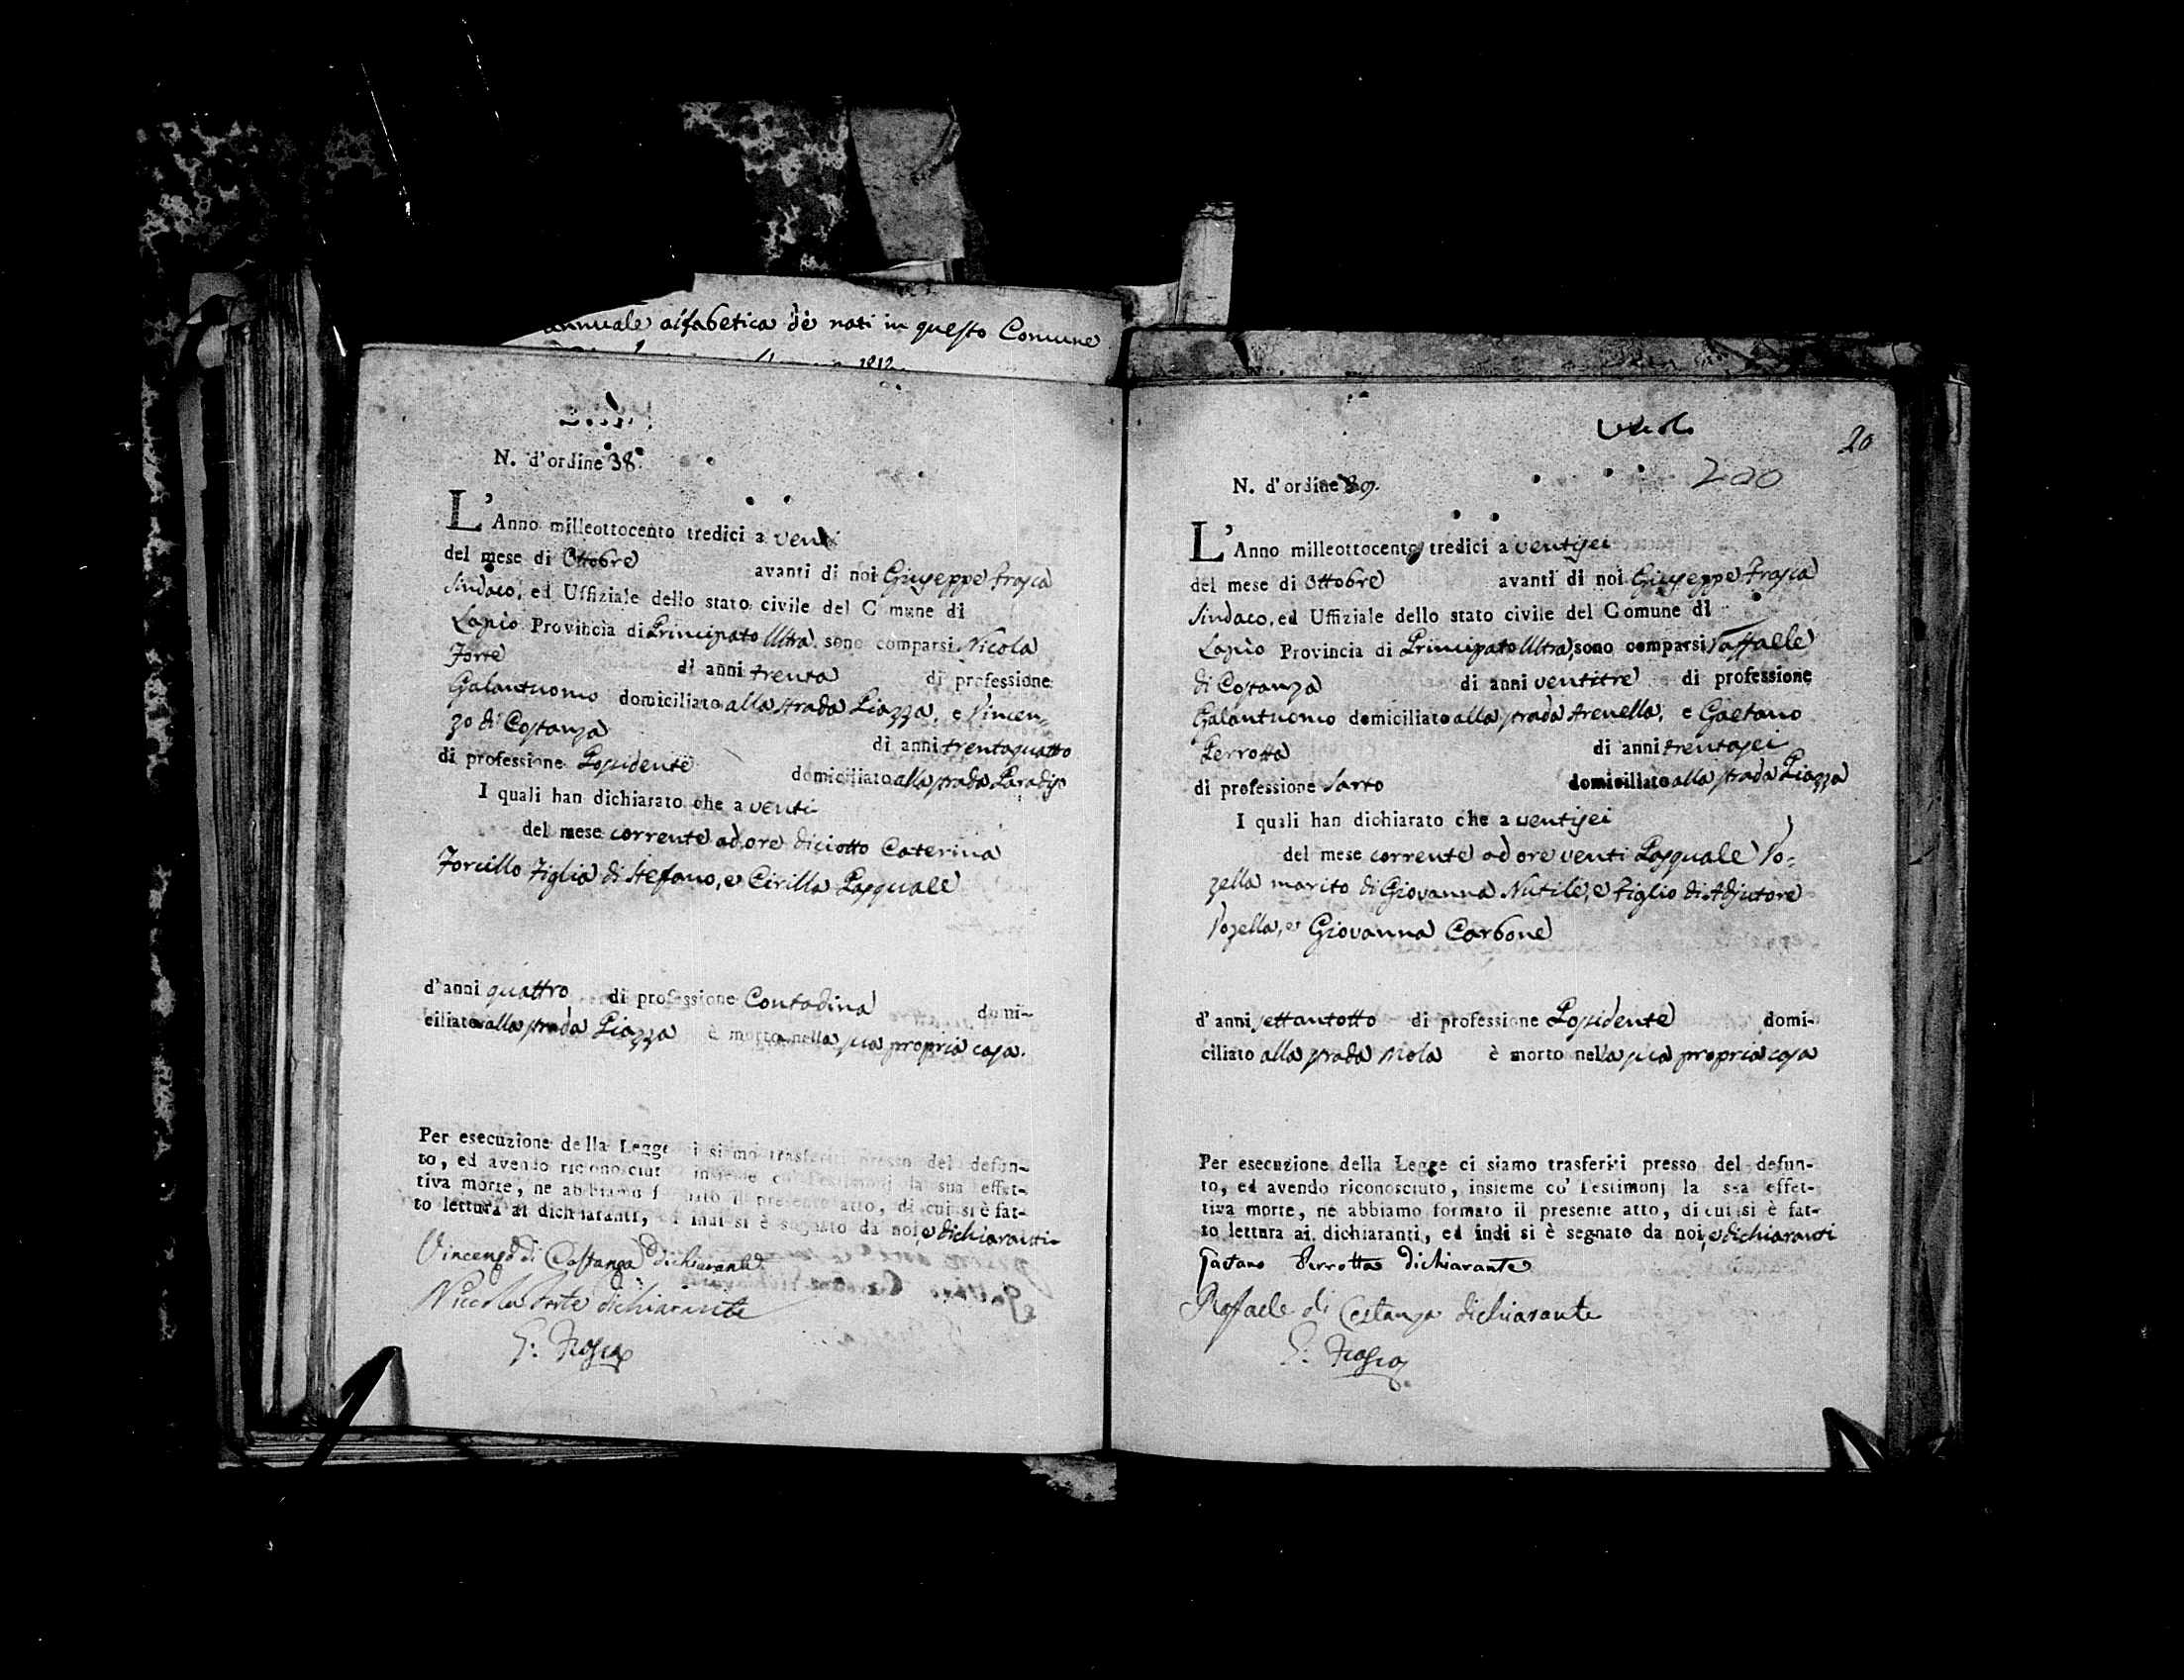 annuale alfabetica de nati in questo Comune
1812.
N. d'ordine 38.
L'Anno milleottocento tredici a venti
del mese di Ottobre avanti di noi Giuseppe Frasca
Sindaco, ed Uffiziale dello stato civile del Comune di
Lapio Provincia di Principato Ultra sono comparsi Nicola
Forte di anni trenta di professione
Galantuomo domiciliato alla strada Piazza, e Vincen-
zo di Costanza di anni trentaquatto
di professione Possidente domiciliato alla strada Paradiso
I quali han dichiarato che a venti
del mese corrente ad ore diciotto Caterina
Forcillo Figlia di Stefano, e Cirilla Pasquale
d'anni quattro di professione Contadina domi-
ciliato alla strada Piazza è morto nella sua propria casa.
Per esecuzione della Legge ci siamo trasferiti presso del defun-
to, ed avendo riconosciuto insieme co' Testimonj la sua effet-
tiva morte, ne abbiamo formato il presente atto, di cui si è fat-
to lettura ai dichiaranti, ed indi si è segnato da noi, e dichiaranti
Vincenzo di Costanza dichiarante
Niccola Forte dichiarante
G: Frasca
20
200
N. d'ordine 39.
L'Anno milleottocento tredici a ventisei
del mese di Ottobre avanti di noi Giuseppe Frasca
Sindaco, ed Uffiziale dello stato civile del Comune di
Lapio Provincia di Principato Ultra, sono comparsi Raffaele
di Costanza di anni ventitre di professione
Galantuomo domiciliato alla strada Arenella, e Gaetano
Perrotta di anni trentasei
di professione Sarto domiciliato alla strada Piazza
I quali han dichiarato che a ventisei
del mese corrente ad ore venti Pasquale Vo-
zella marito di Giovanna Nutile, e Figlio di Adjutore
Vozella, e Giovanna Carbone
d'anni settantotto di professione Possidente domi-
ciliato alla strada Mola è morto nella sua propria casa
Per esecuzione della Legge ci siamo trasferiti presso del defun-
to, ed avendo riconosciuto, insieme co' Testimonj la sua effet-
tiva morte, ne abbiamo formato il presente atto, di cui si è fat-
to lettura ai dichiaranti, ed indi si è segnato da noi, e dichiaranti
Gaetano Perrotta dichiarante
Raffaele di Costanza dichiarante
G: Frasca